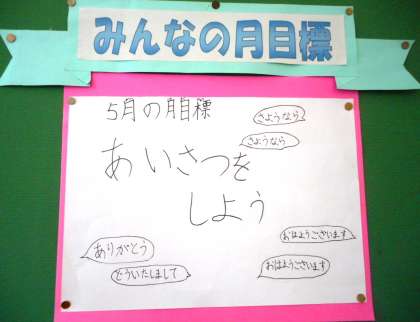 みんなの月目標
5月の月目標
さようなら
さようなら
あいさつを
しよう
ありがとう
どういたしまして
おはようございます
おはようございます